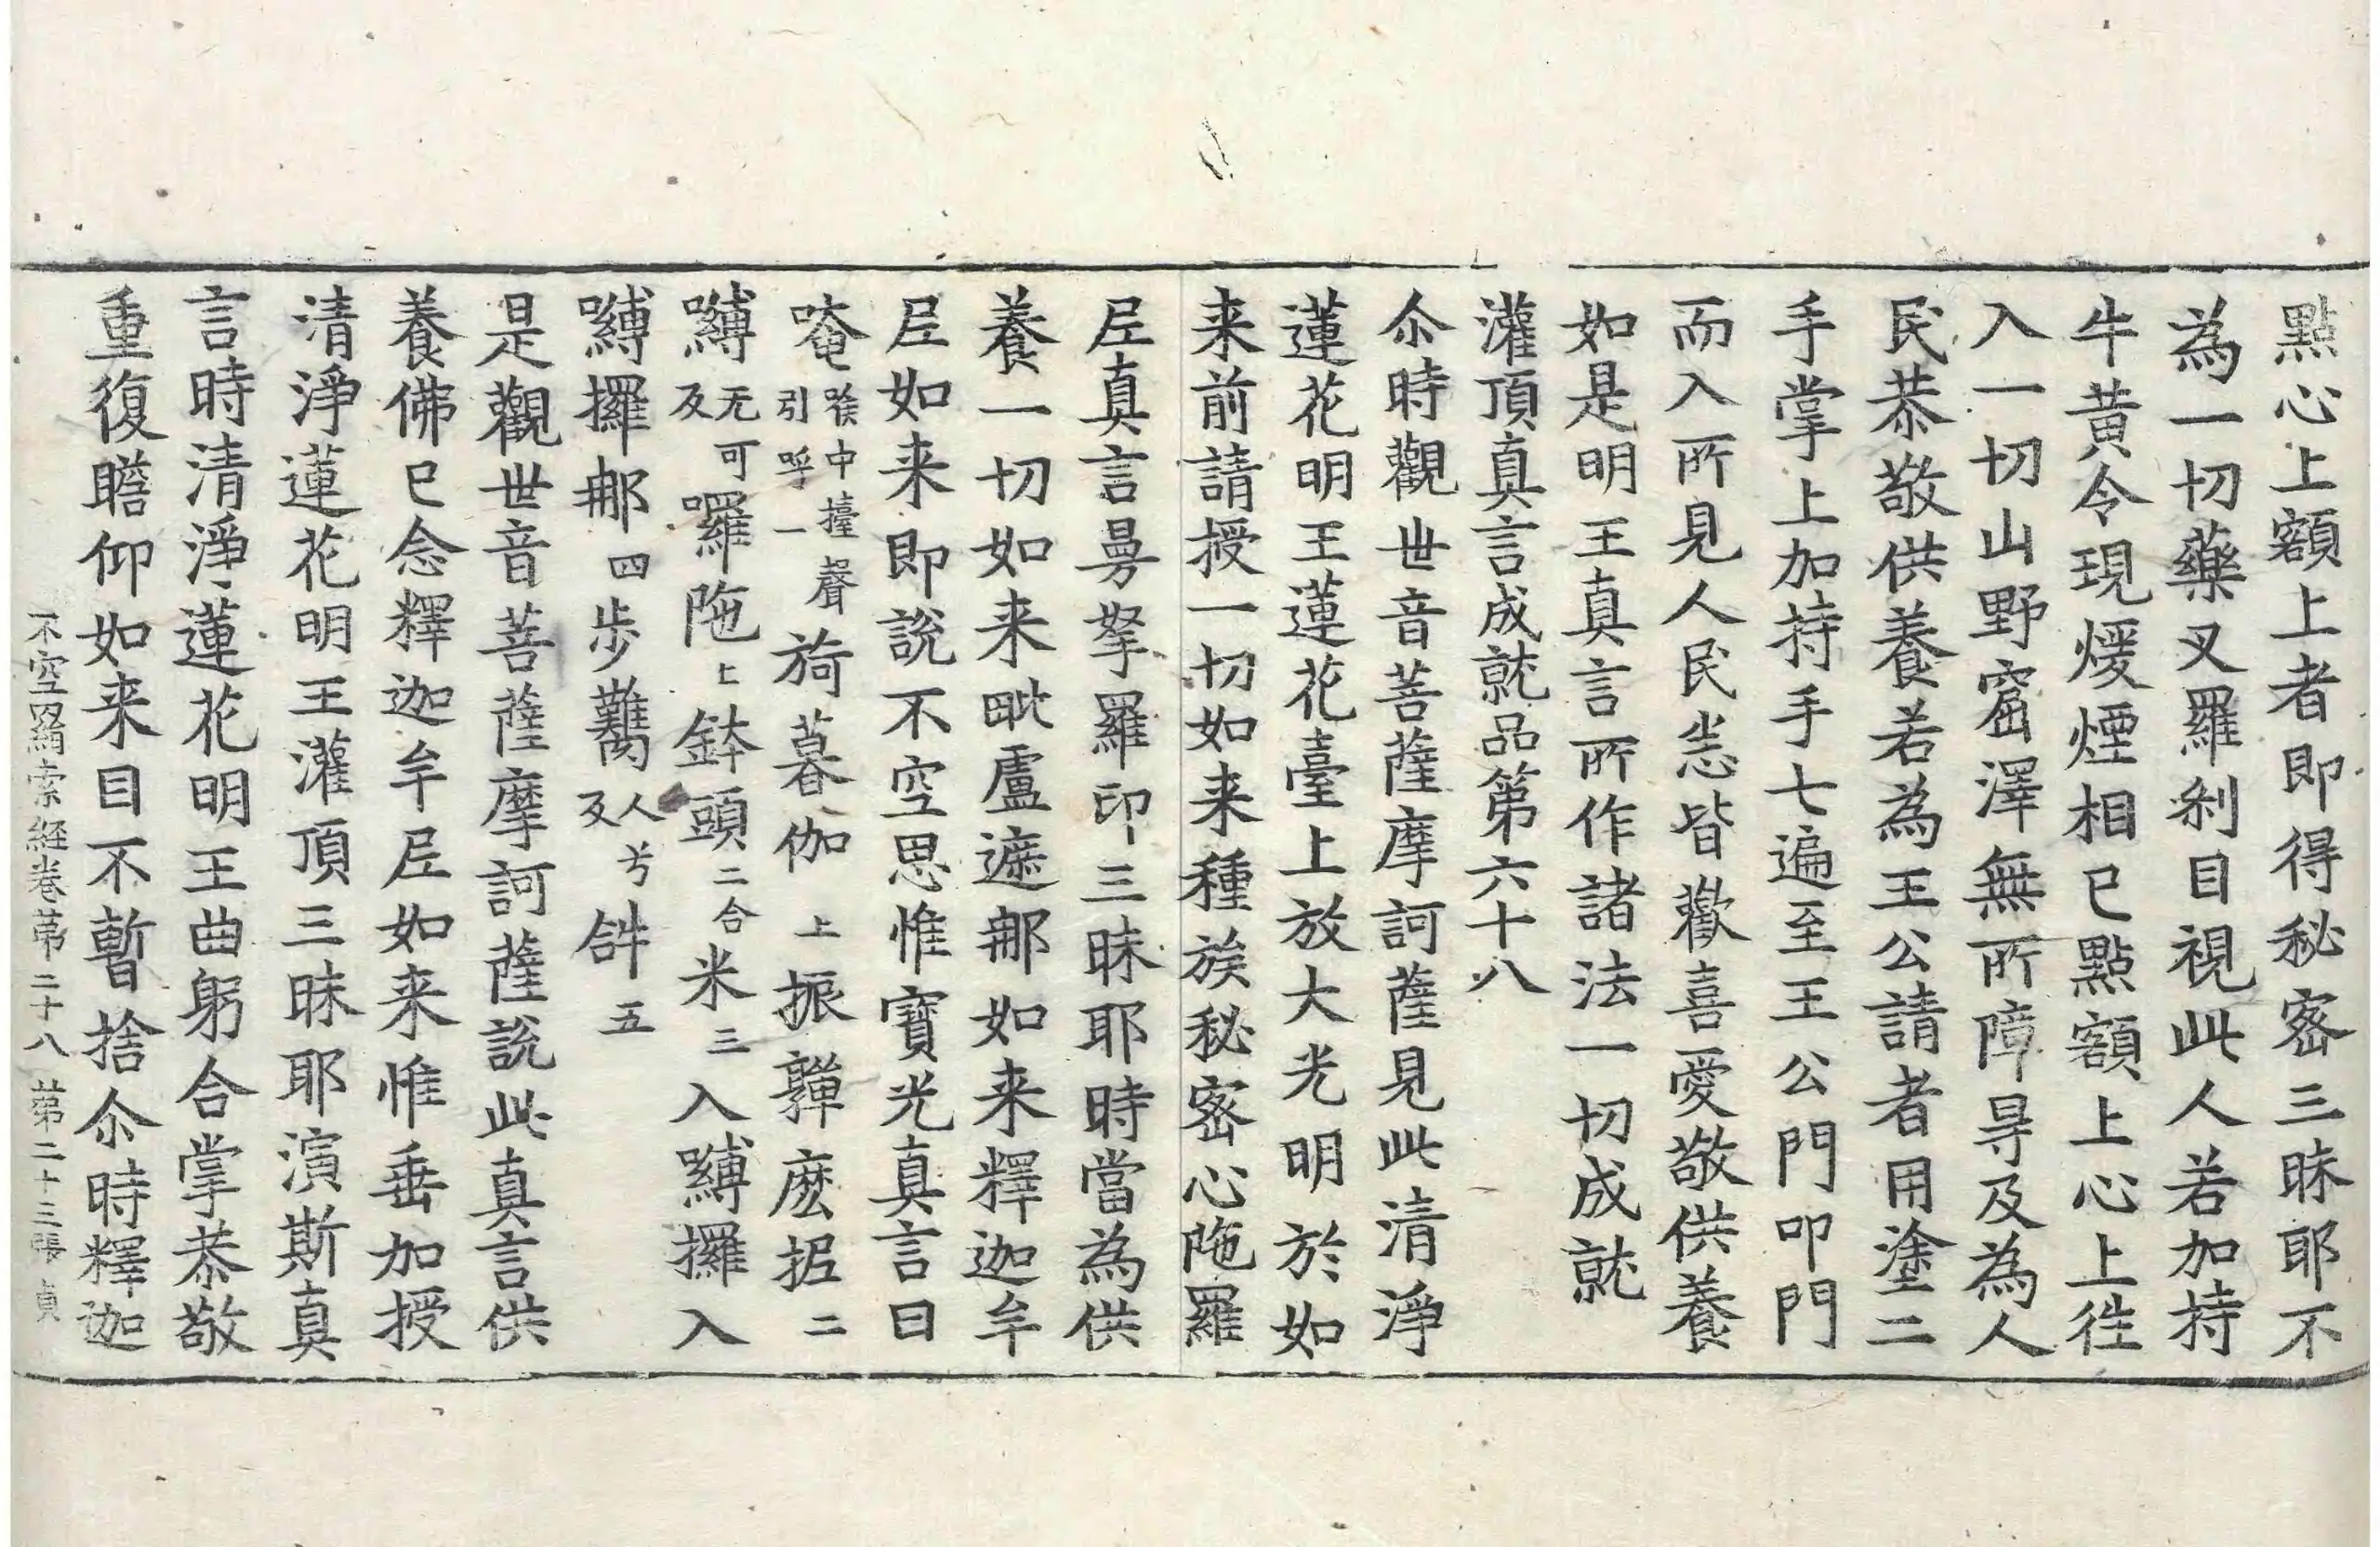 點心上額上者即得秘密三昧耶不
為一切藥叉羅刹目視此人若加持
牛黄令現煖煙相已點額上心上徃
入一切山野窟澤無所障㝵及為人
民恭敬供養若為王公請者用塗二
手掌上加持手七遍至王公門叩門
而入所見人民悉皆歡喜愛敬供養
如是明王真言所作諸法一切成就
灌頂真言成就品第六十八
尒時觀世音菩薩摩訶薩見此清淨
蓮花明王蓮花臺上放大光明於如
来前請授一切如来種族秘密心陁羅
㞾真言曼拏羅印三昧耶時當為供
養一切如来毗盧遮那如来釋迦牟
㞾如来即說不空思惟寶光真言曰
唵喉中擡聲引呼一旖暮伽上振䎡麽抳二
嚩无可反囉陁上鉢頭二合米三入嚩攞入
嚩攞那四步臡人兮反𤙖五
是觀世音菩薩摩訶薩說此真言供
養佛已念釋迦牟㞾如来惟垂加授
清淨蓮花明王灌頂三昧耶演斯真
言時清淨蓮花明王曲躬合掌恭敬
重復瞻仰如来目不暫捨尒時釋迦
不空羂索経卷第二十八 第二十三張 貞